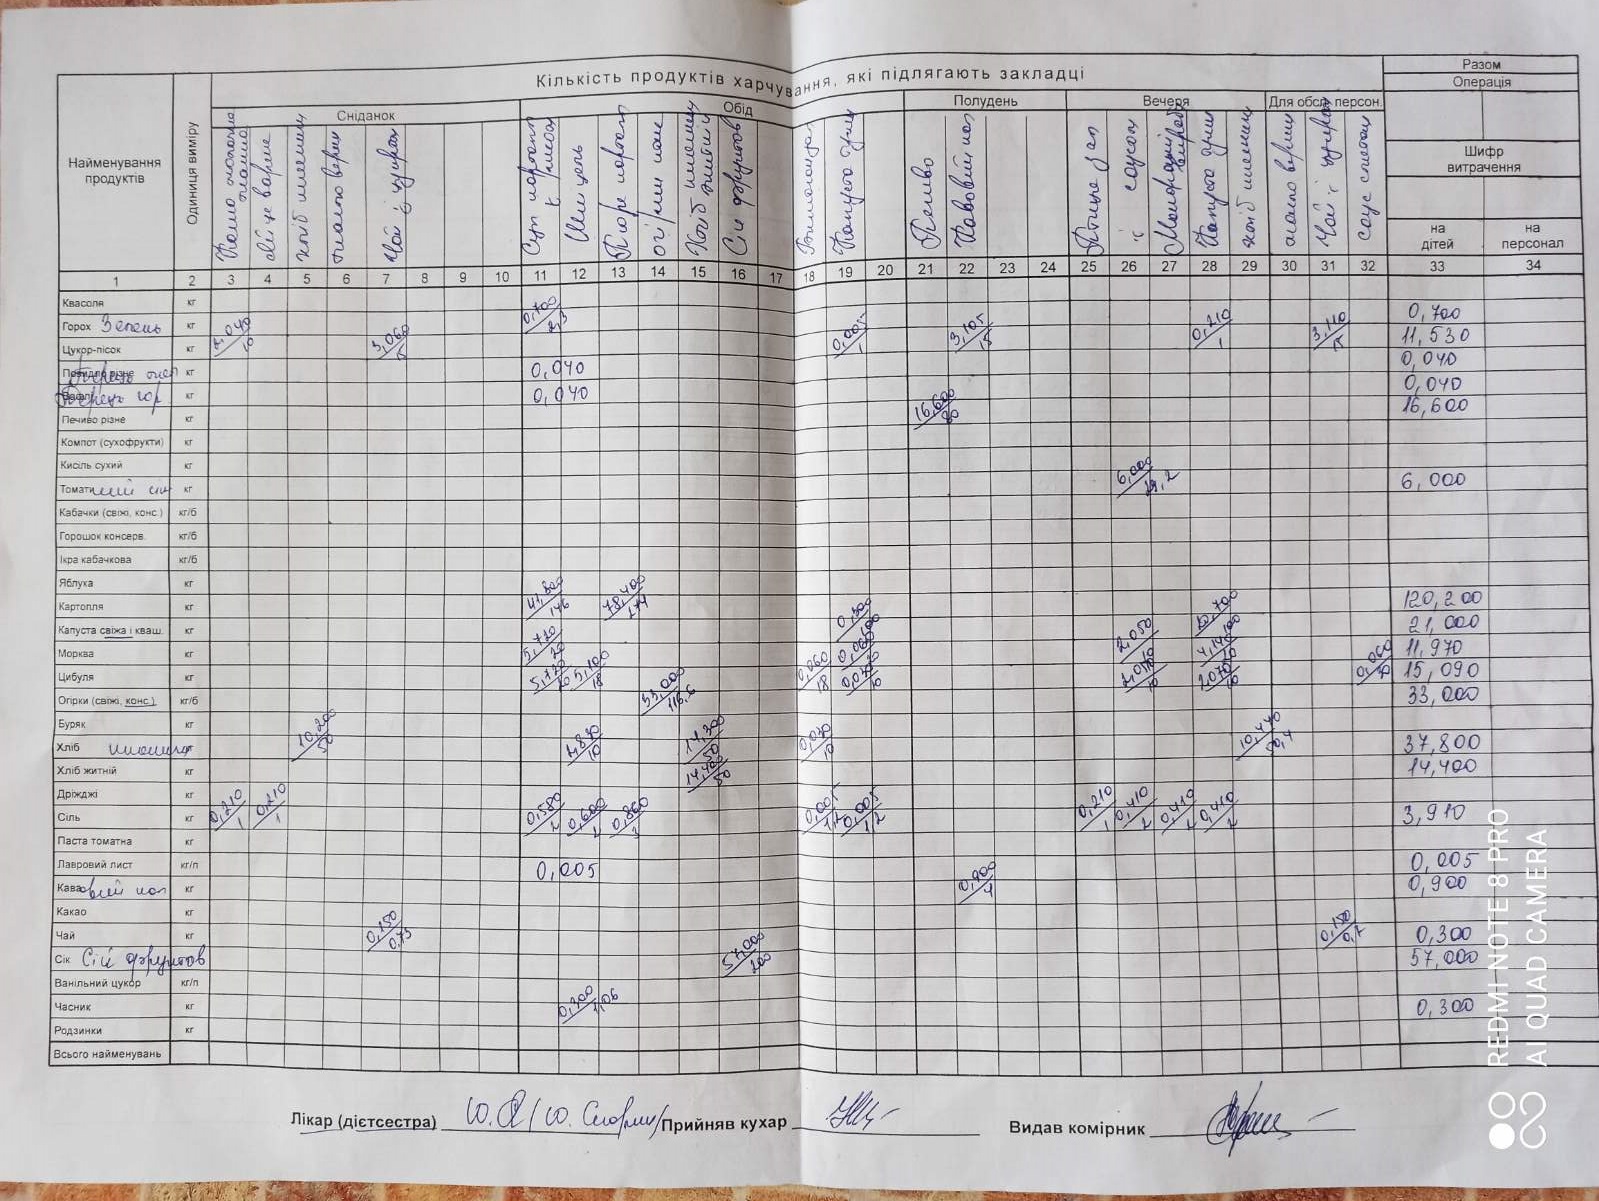 Кількість продуктів харчування, які підлягають закладці
Разом
Операція
Найменування продуктів
Одиниця виміру
Сніданок
Обід
Полудень
Вечеря
Для обсл. персон.
Шифр витрачення
на дітей
на персонал
хліб пшеничний
Чай з цукром
Шніцель
Пюре
Хліб пшеничний
житній
Сік фруктов
Вінегрет
Капуста туш
Печиво
Кавовий нап
Птиця зап
з соусом
Макаронні вироби
Капуста туш
хліб пшеничн
масло верш
Чай з цукром
соус сметан
1 2 3 4 5 6 7 8 9 10 11 12 13 14 15 16 17 18 19 20 21 22 23 24 25 26 27 28 29 30 31 32 33 34
Квасоля кг
Горох Зелень кг 0,700 0,700
Цукор-пісок кг 3,060/15 0,005/1 3,105/15 0,210/1 3,110/15 11,530
Повидло різне кг 0,040 0,040
кг 0,040 0,040
Печиво різне кг 16,600/80 16,600
Компот (сухофрукти) кг
Кисіль сухий кг
Томатний сік кг 6,000/29,2 6,000
Кабачки (свіжі, конс.) кг/б
Горошок консерв. кг/б
Ікра кабачкова кг/б
Яблука кг
Картопля кг 41,800/146 78,400/274 120,200
Капуста свіжа і кваш. кг 0,300 21,000
Морква кг 5,720/20 2,050/10 4,140/20 11,970
Цибуля кг 5,720/20 5,100/18 0,060/18 2,070/10 2,070/10 0,060 15,090
Огірки (свіжі, конс.) кг/б 33,000/116,6 33,000
Буряк кг
Хліб пшенич кг 10,200/50 2,830/10 14,300/50 0,030/10 10,440/50,4 37,800
Хліб житній кг 14,400/50 14,400
Дріжджі кг
Сіль кг 0,210/1 0,210/1 0,580/2 0,600/2 0,860/3 0,005/1,2 0,005/1,2 0,210/1 0,410/2 0,410/2 0,410/2 3,910
Паста томатна кг
Лавровий лист кг/п 0,005 0,005
Кавовий нап кг 0,900/4 0,900
Какао кг
Чай кг 0,150/0,73 0,150/0,7 0,300
Сік Сік фруктов 57,000/200 57,000
Ванільний цукор кг/п
Часник кг 0,300/1,06 0,300
Родзинки кг
Всього найменувань
Лікар (дієтсестра) Прийняв кухар Видав комірник
REDMI NOTE 8 PRO
AI QUAD CAMERA